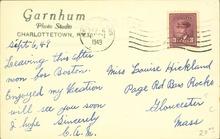 Garnham
Photo Studio
CHARLOTTETOWN, P.E.I.
1949
Sept 6, 49
Leaving this after
noon for Boston.
Enjoyed my Vacation
will see you soon
I hope Sincerely
C.A.M.
Miss Louise Hickland
Page Rd Bass Rocks
Gloucester
Mass